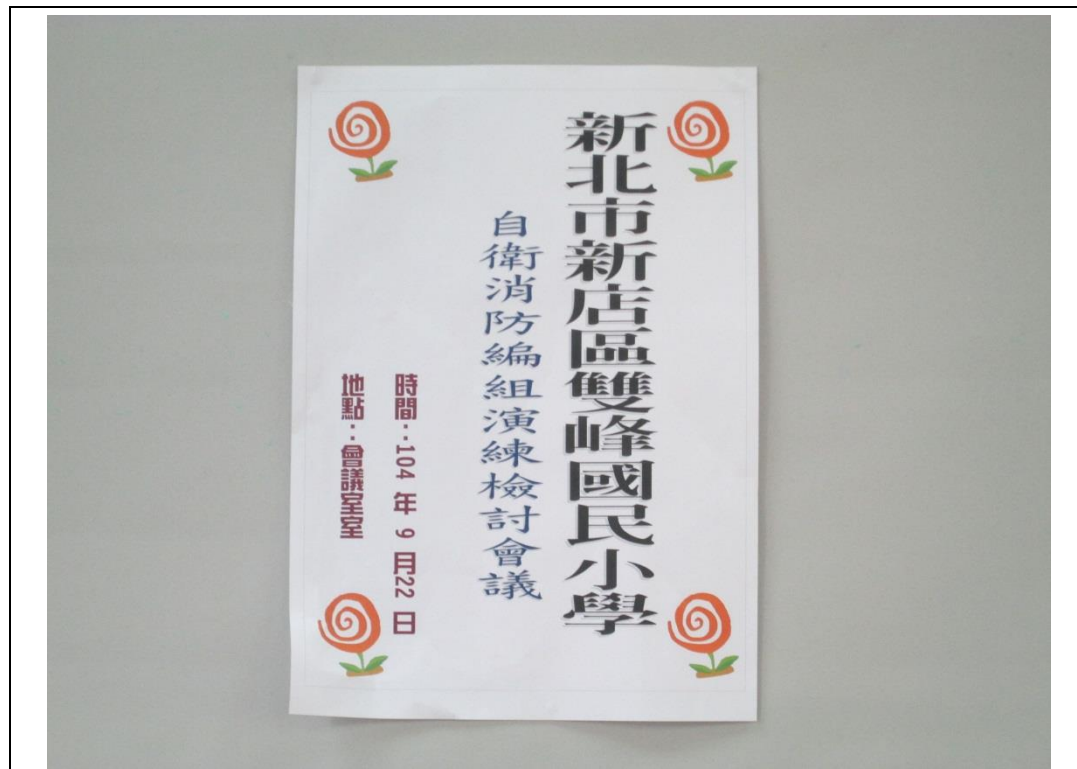 新北市新店區雙峰國民小學
自衛消防編組演練檢討會議
時間：104 年 9 月22 日
地點：會議室室